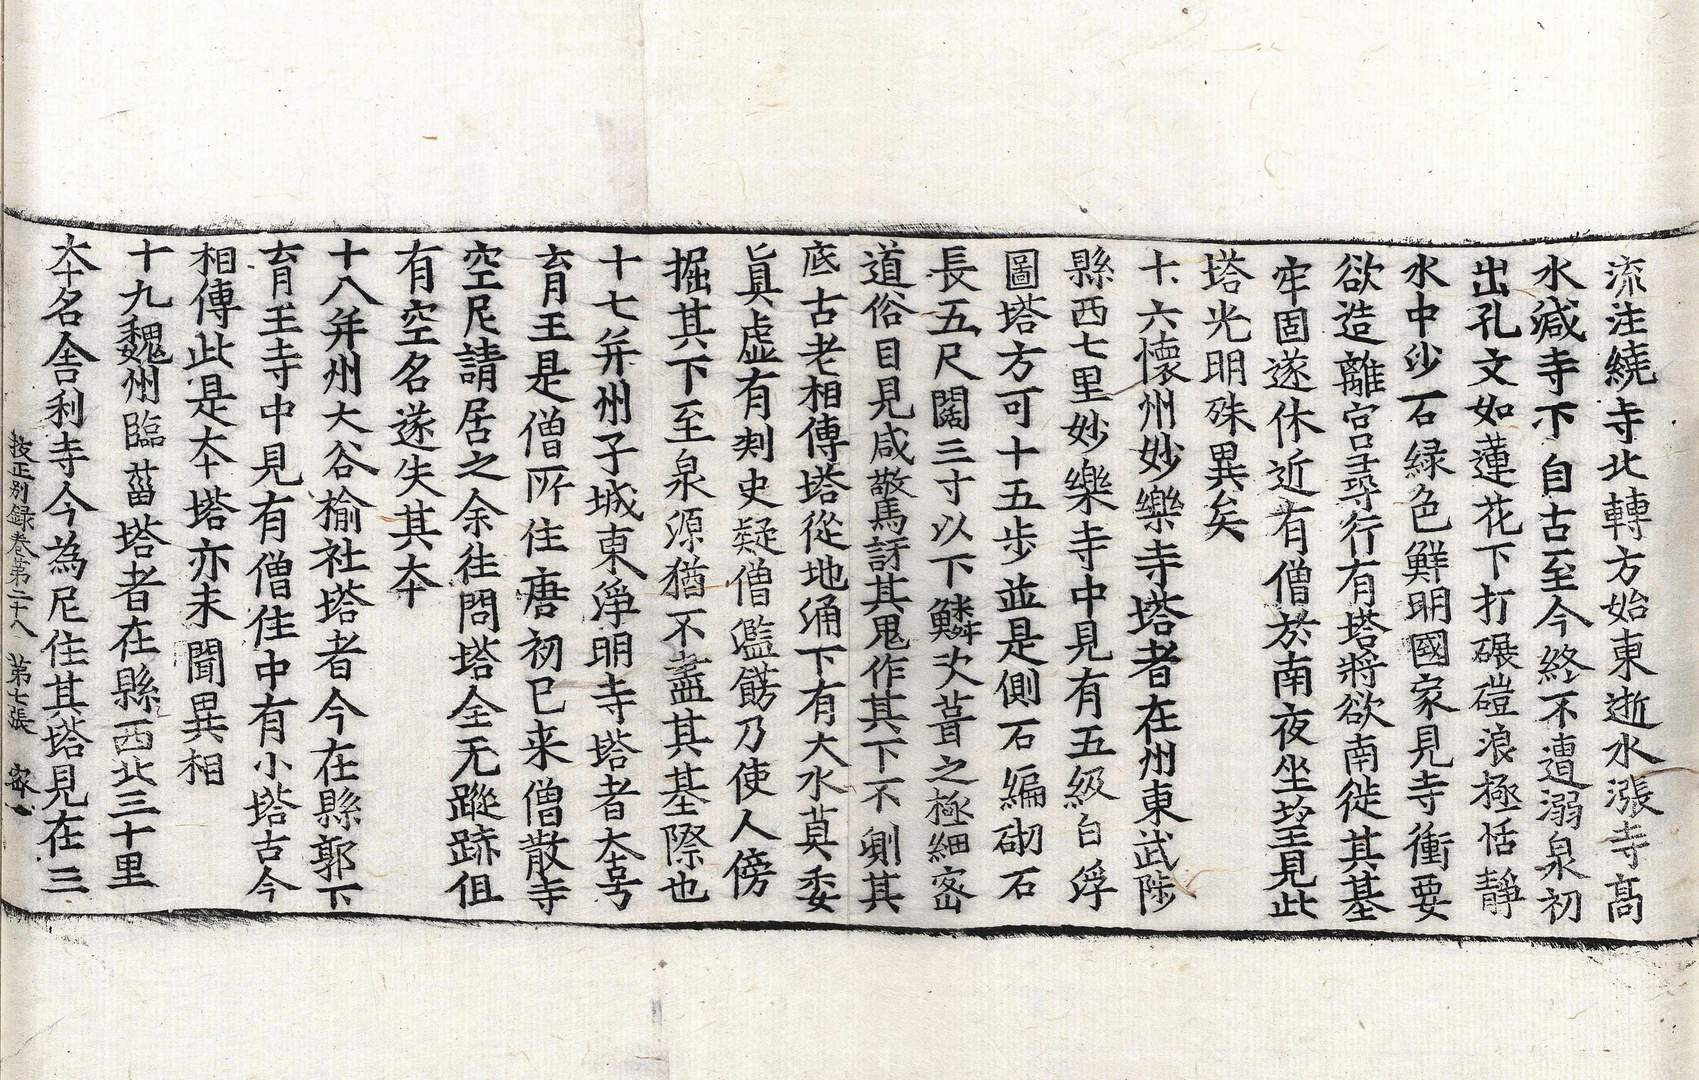 流注繞寺北轉方始東逝水漲寺高
水減寺下自古至今終不遭溺泉初
出孔文如蓮花下打碾磑浪極恬靜
水中沙石緑色鮮明國家見寺衝要
欲造離宮尋行有塔將欲南徙其基
牢固遂休近有僧於南夜坐望見此
塔光明殊異矣
十六懷州妙樂寺塔者在州東武陟
縣西七里妙樂寺中見有五級白浮
圖塔方可十五步並是側石編砌石
長五尺闊三寸以下鱗次葺之極細密
道俗目見咸驚訝其鬼作其下不測其
底古老相傳塔從地涌下有大水莫委
眞虛有刾史疑僧濫飾乃使人傍
掘其下至泉源猶不盡其基際也
十七并州子城東淨明寺塔者本号
育王是僧所住唐初已来僧散寺
空尼請居之余往問塔全无蹤跡但
有空名遂失其本
十八并州大谷榆社塔者今在縣郭下
育王寺中見有僧住中有小塔古今
相傳此是本塔亦未聞異相
十九魏州臨菑塔者在縣西北三十里
本名舍利寺今為尼住其塔見在三
挍正別録卷第二十八　第七張　密